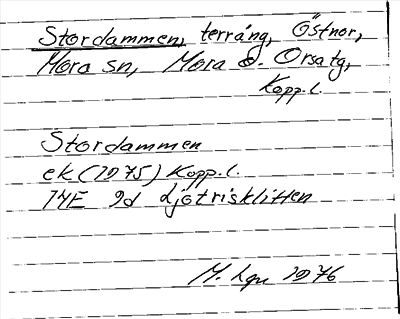 Stordammen, terräng, Östnor,
Mora sn, Mora o. Orsa tg,
Kopp.l.
Stordammen
ek (1975) Kopp.l.
14E 9d Ljotrisklitten
M. Lqu 1976